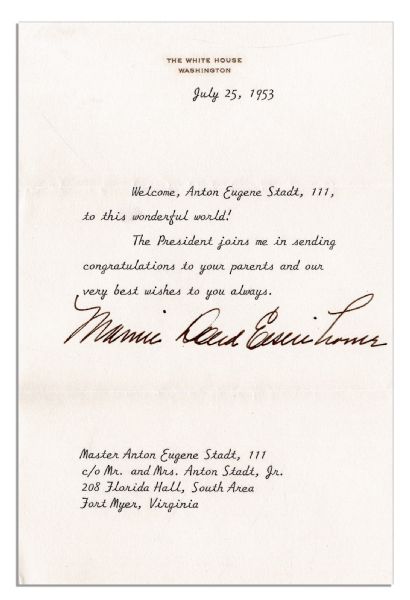 THE WHITE HOUSE
WASHINGTON
July 25, 1953
Welcome, Anton Eugene Stadt, 111,
to this wonderful world!
The President joins me in sending
congratulations to your parents and our
very best wishes to you always.
Mamie Doud Eisenhower
Master Anton Eugene Stadt, 111
c/o Mr. and Mrs. Anton Stadt, Jr.
208 Florida Hall, South Area
Fort Myer, Virginia